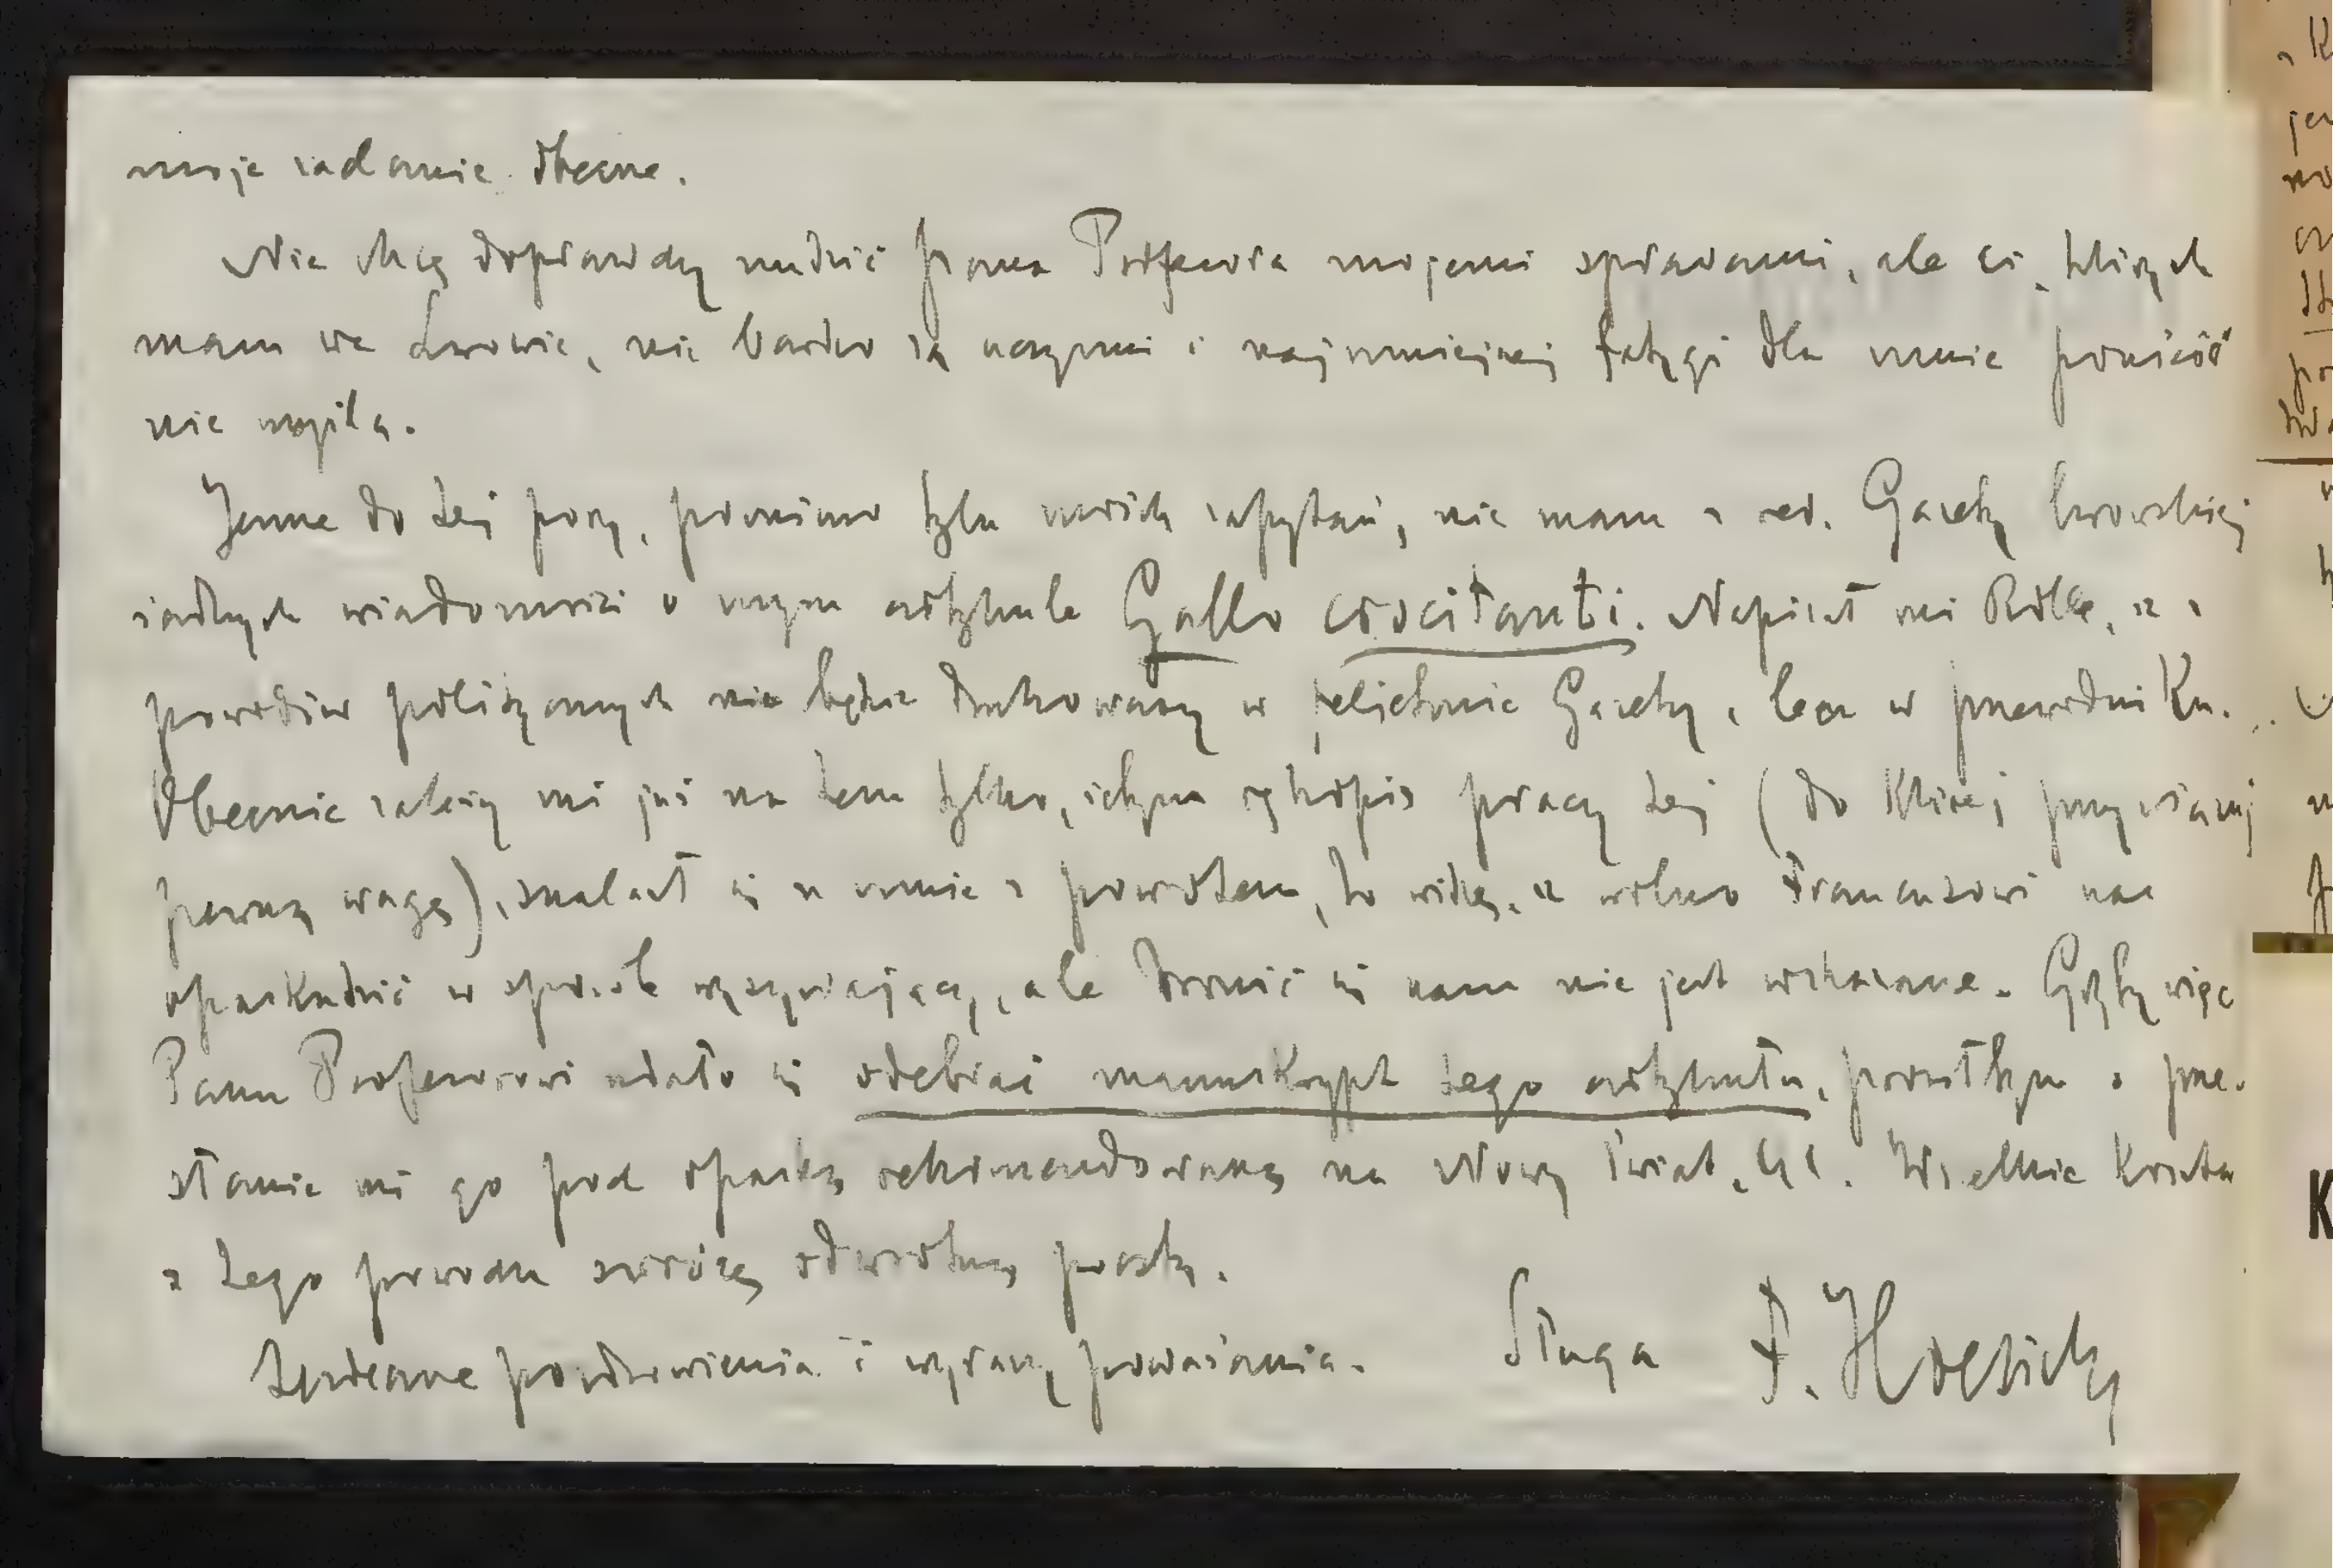 moje zadanie obecne.
Nie chcę doprawdy nudzić Pana Profesora mojemi sprawami, ale ci, których
mam we Lwowie, nie bardzo są uczynni i najmniejszej fatygi dla mnie ponieść
nie myślą.
Jeszcze do tej pory, pomimo tylu moich zapytań, nie mam z red. Gazety lwowskiej
żadnych wiadomości o mym artykule Gallo crocitanti. Napisał mi Rolle, że z
powodów politycznych nie będzie drukowany w feljetonie Gazety, lecz w przewodniku.
Obecnie zależy mi już na tem tylko, żebym rękopis pracy tej (do której przywiązuję
pewną wagę), znalazł się u mnie z powrotem, bo widzę, że wolno Francuzowi nas
opaskudzić w sposób wyzywający, ale bronić się nam nie jest wskazane. Gdyby więc
Panu Profesorowi udało się odebrać manuskrypt tego artykułu, prosiłbym o prze-
słanie mi go pod opaską rekomendowaną na Nowy Świat, 41. Wszelkie koszta
z tego powodu zwrócę odwrotną pocztą.
Serdeczne pozdrowienia i wyrazy poważania. Sługa F. Hoesick